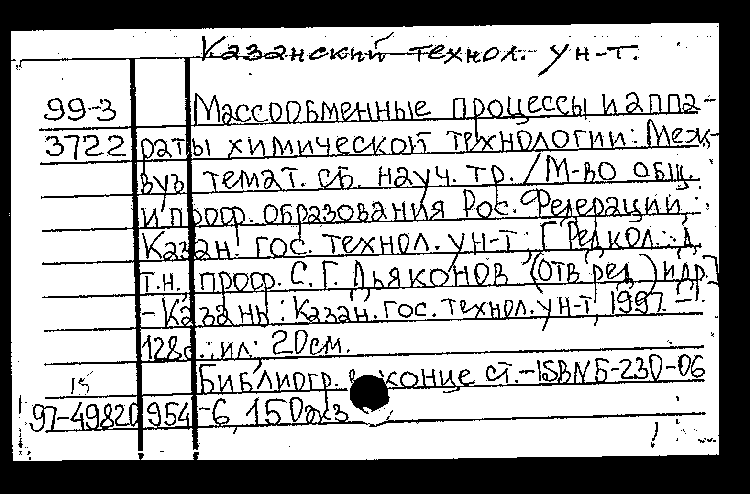 Казанский технол. ун-т.
99-3 Массообменные процессы и аппа-
3722 раты химической технологии: Меж-
вуз. темат. сб. науч. тр. / М-во общ.
и проф. образования Рос. Федерации,
Казан. гос. технол. ун-т; [Редкол.: д.
т.н., проф. С. Г. Дьяконов (отв. ред.) и др.]
- Казань: Казан. гос. технол. ун-т, 1997. -
128с.: ил; 20см.
15 Библиогр. в конце ст. - ISBN 5-230-06
97-49820 954-6, 150экз